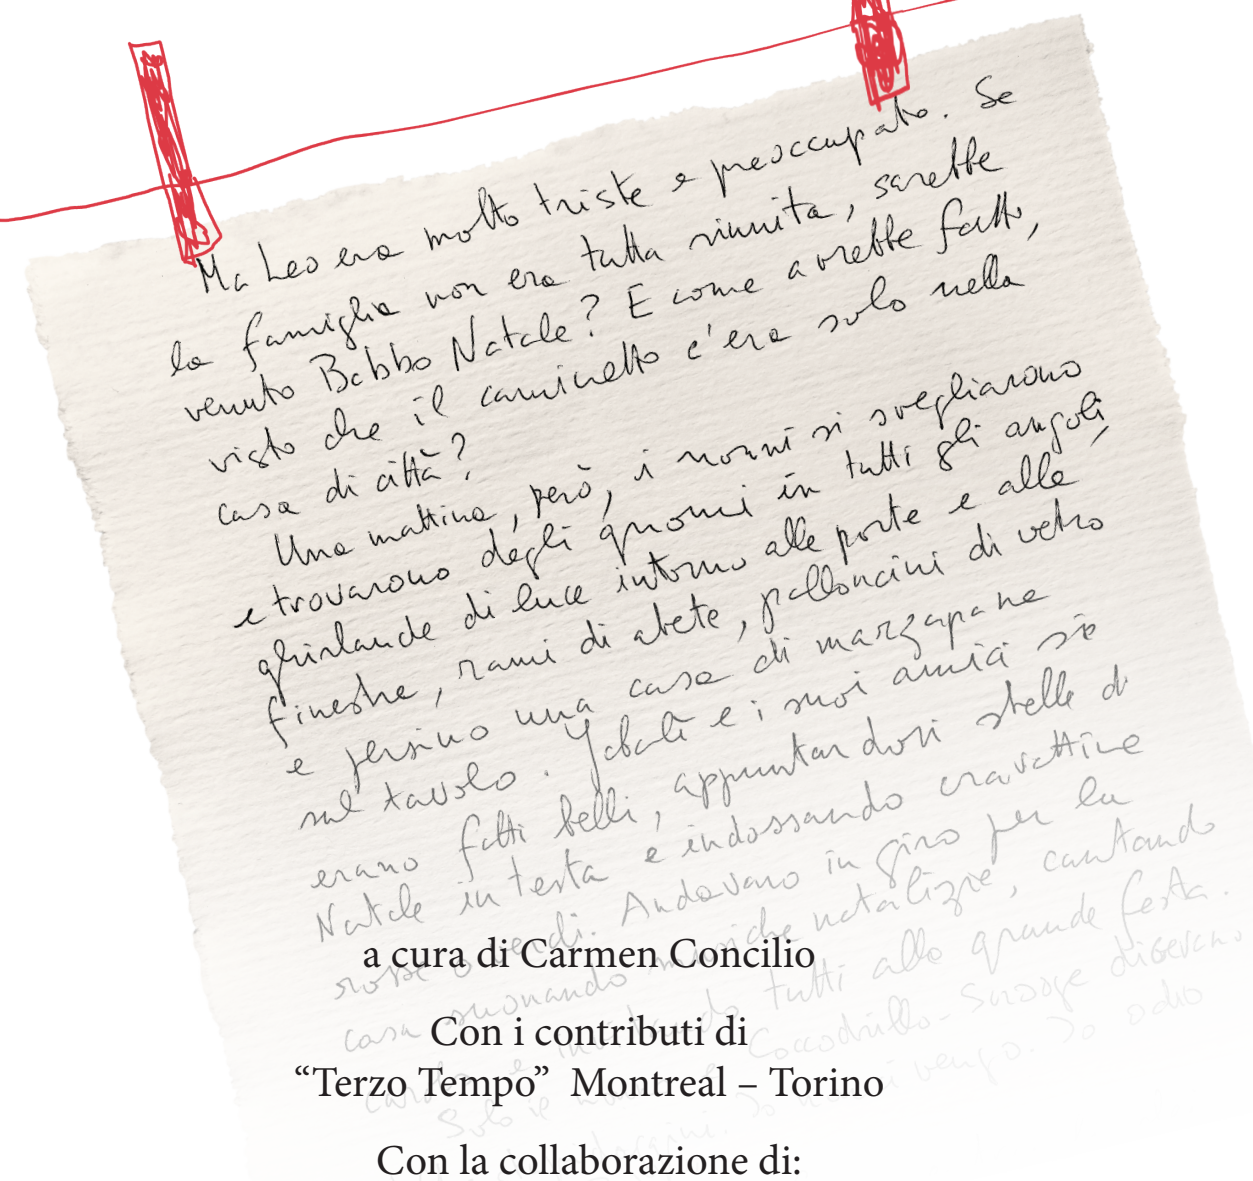 Ma Leo era molto triste e preoccupato. Se
la famiglia non era tutta riunita, sarebbe
venuto Babbo Natale? E come avrebbe fatto,
visto che il caminetto c'era solo nella
casa di città?
Una mattina, però, i nonni si svegliarono
e trovarono degli gnomi in tutti gli angoli,
ghirlande di luce intorno alle porte e alle
finestre, rami di abete, palloncini di vetro
e persino una casa di marzapane
sul tavolo. e i suoi amici si
erano fatti belli, appuntandosi stelle di
Natale in testa e indossando cravattine
rosse o verdi. Andavano in giro per la
casa suonando musiche natalizie, cantando
tutti alla grande festa.
Solo Coccodrillo- dicevano
vengo. Io odio
a cura di Carmen Concilio
Con i contributi di
“Terzo Tempo” Montreal – Torino
Con la collaborazione di: